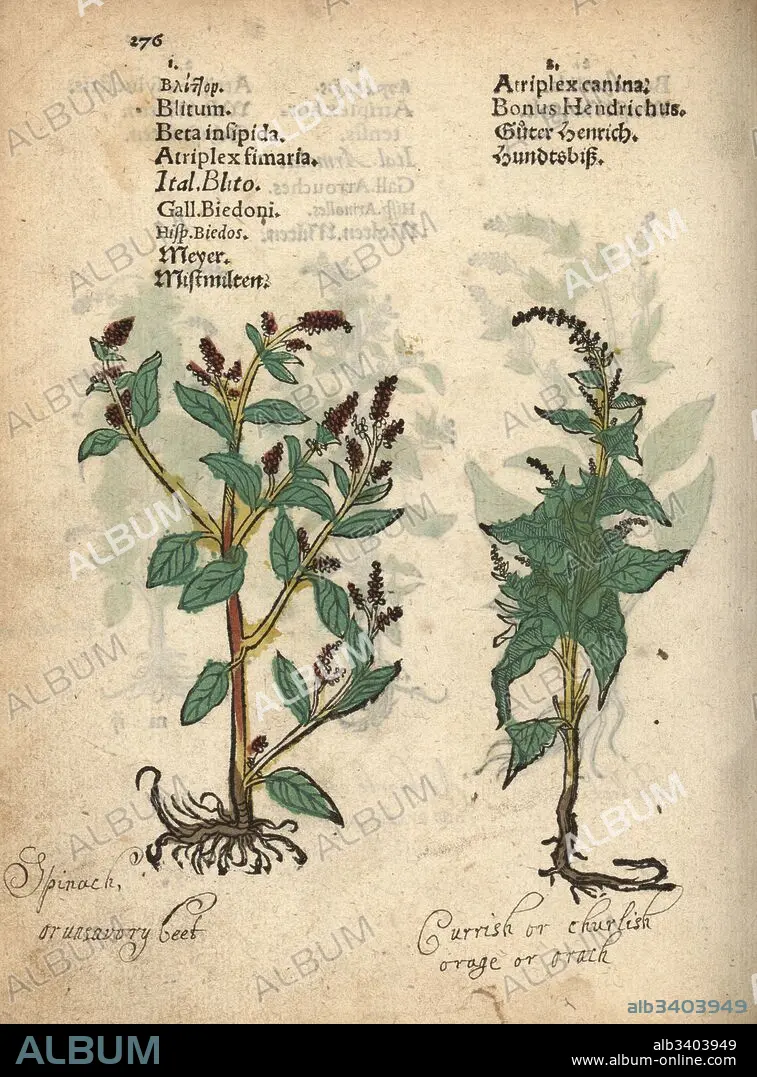 276
1.
Βλίτον.
Blitum.
Beta insipida.
Atriplex fimaria.
Ital. Blito.
Gall. Biedoni.
Hisp. Biedos.
Meyer.
Mistmilten.
2.
Atriplex canina.
Bonus Hendrichus.
Gůter Henrich.
Hundtsbiß.
Spinach,
or unsavory beet
Currish or churlish
orage or orach
alb3403949
ALBUM
alb3403949
www.album-online.com